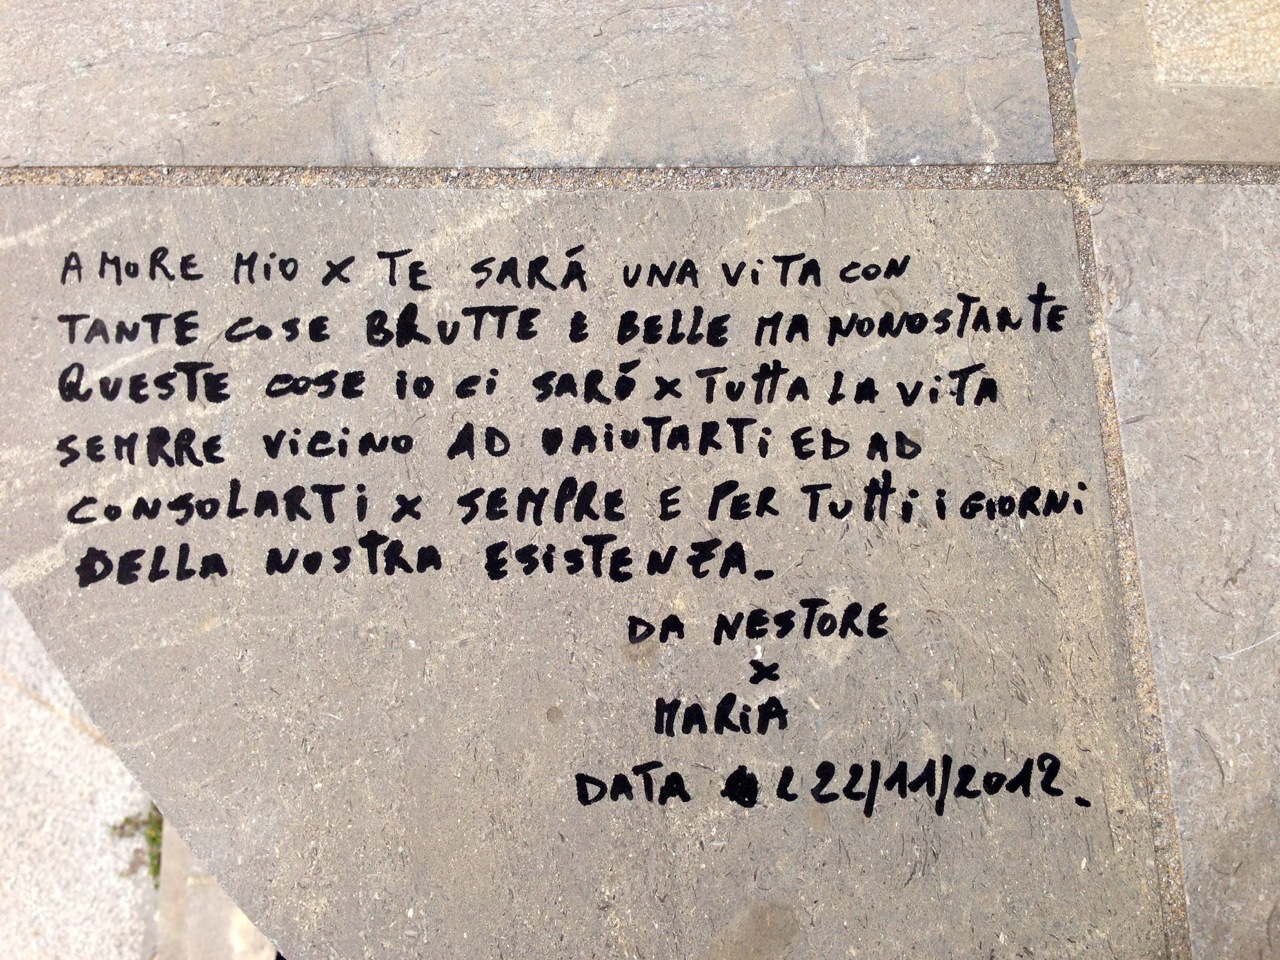 AMORE MIO X TE SARÁ UNA VITA CON
TANTE COSE BRUTTE E BELLE MA NONOSTANTE
QUESTE COSE IO CI SARÓ X TUTTA LA VITA
SEMRRE VICINO AD AIUTARTI ED AD
CONSOLARTI X SEMPRE E PER TUTTI I GIORNI
DELLA NOSTRA ESISTENZA.
DA NESTORE
X
MARIA
DATA 22/11/2012.